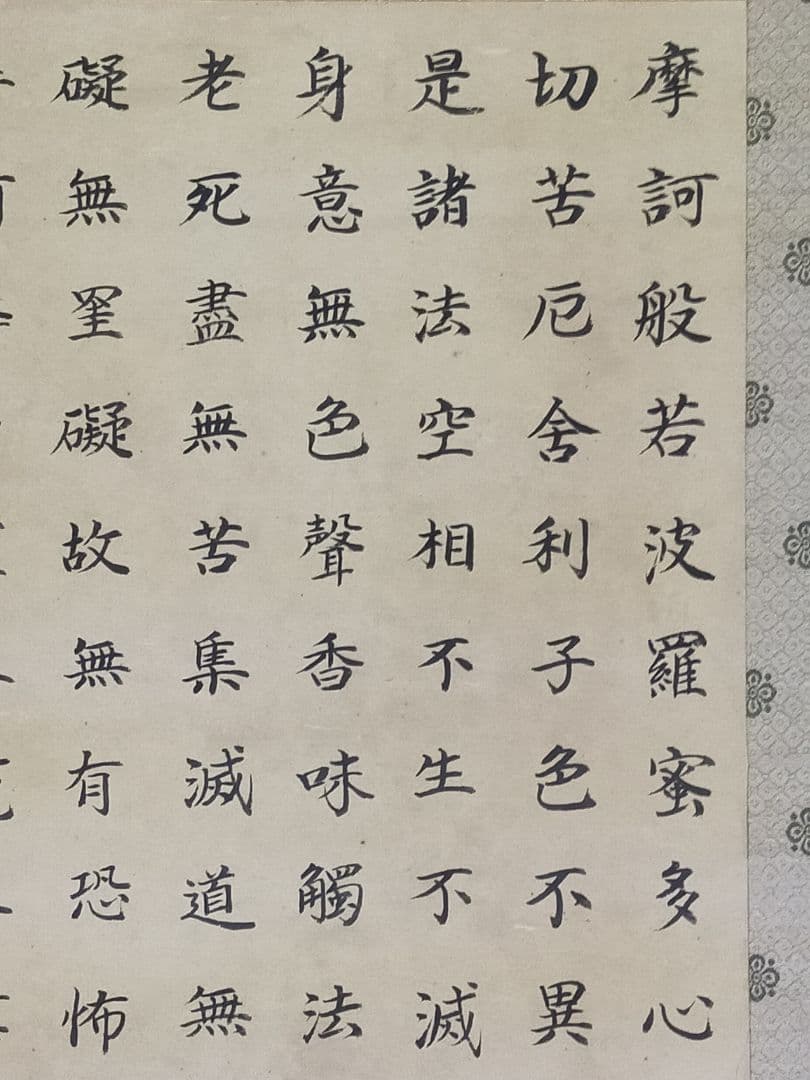 摩訶般若波羅蜜多心
切苦厄舍利子色不異
是諸法空相不生不滅
身意無色聲香味觸法
老死盡無苦集滅道無
礙無罣礙故無有恐怖